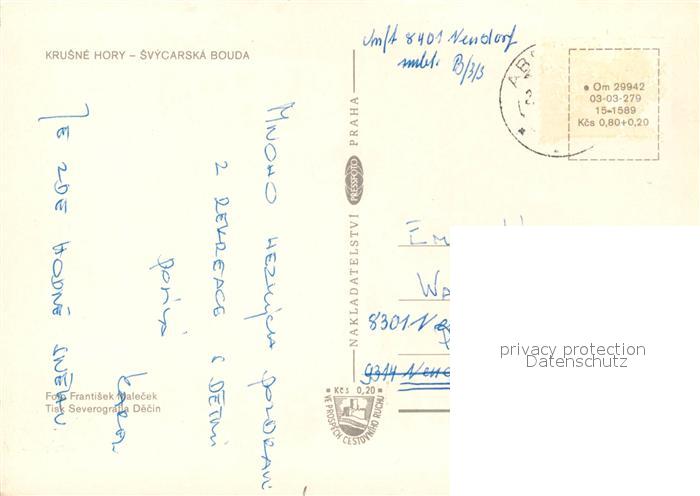 KRUŠNÉ HORY – ŠVÝCARSKÁ BOUDA
MNOHO HEZKÝCH POZDRAVŮ
Z REKREACE S DĚTMI
POSÍLÁ
JE ZDE HODNĚ SNĚHU.
Foto František Maleček
Tisk Severografia Děčín
NAKLADATELSTVÍ PRESSFOTO PRAHA
Kčs 0,20
VE PROSPĚCH CESTOVNÍHO RUCHU
8401
B/3/3
Om 29942
03-03-279
15-1589
Kčs 0,80+0,20
Em
Wa
8301
9314
privacy protection
Datenschutz